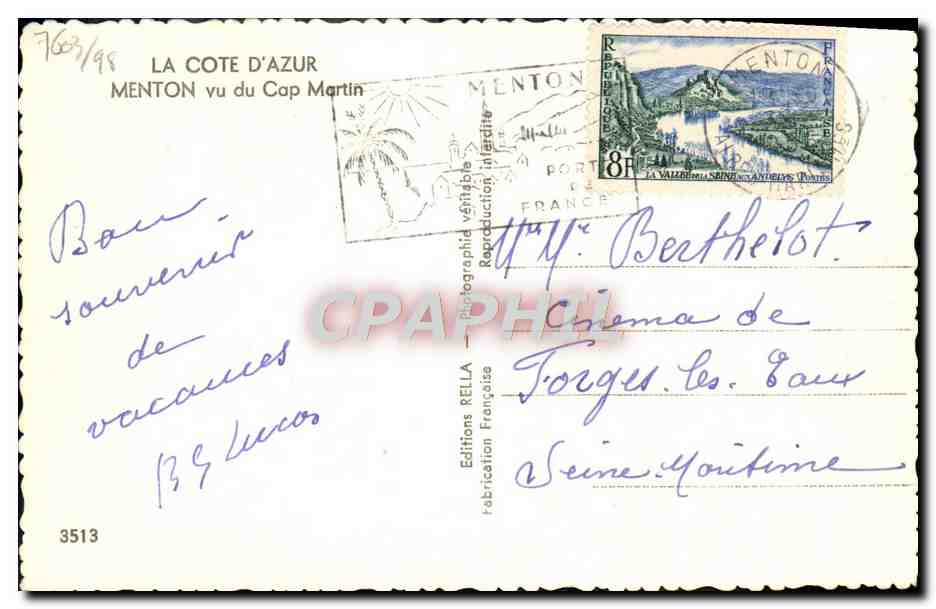 7603/98
LA COTE D'AZUR
MENTON vu du Cap Martin
MENTON
PORT
FRANCE
REPUBLIQUE FRANÇAISE
8F
LA VALLÉE DE LA SEINE AUX ANDELYS POSTES
MENTON
Bon
souvenir
de
vacances
Lucas
3513
Editions RELLA - Photographie véritable
Fabrication Française Reproduction interdite
CPAPHIL
Berthelot.
Cinema de
Forges. les. Eaux
Seine. Maritime